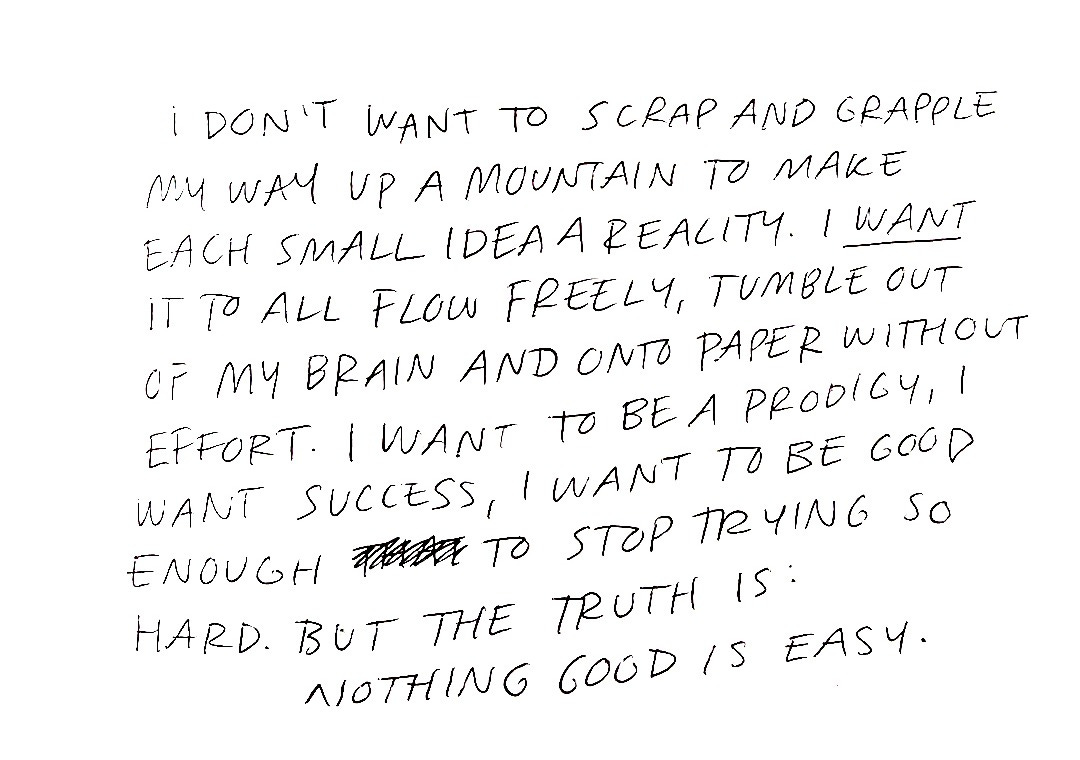 I DON'T WANT TO SCRAP AND GRAPPLE
MY WAY UP A MOUNTAIN TO MAKE
EACH SMALL IDEA A REALITY. I WANT
IT TO ALL FLOW FREELY, TUMBLE OUT
OF MY BRAIN AND ONTO PAPER WITHOUT
EFFORT. I WANT TO BE A PRODIGY, I
WANT SUCCESS, I WANT TO BE GOOD
ENOUGH TO STOP TRYING SO
HARD. BUT THE TRUTH IS:
NOTHING GOOD IS EASY.